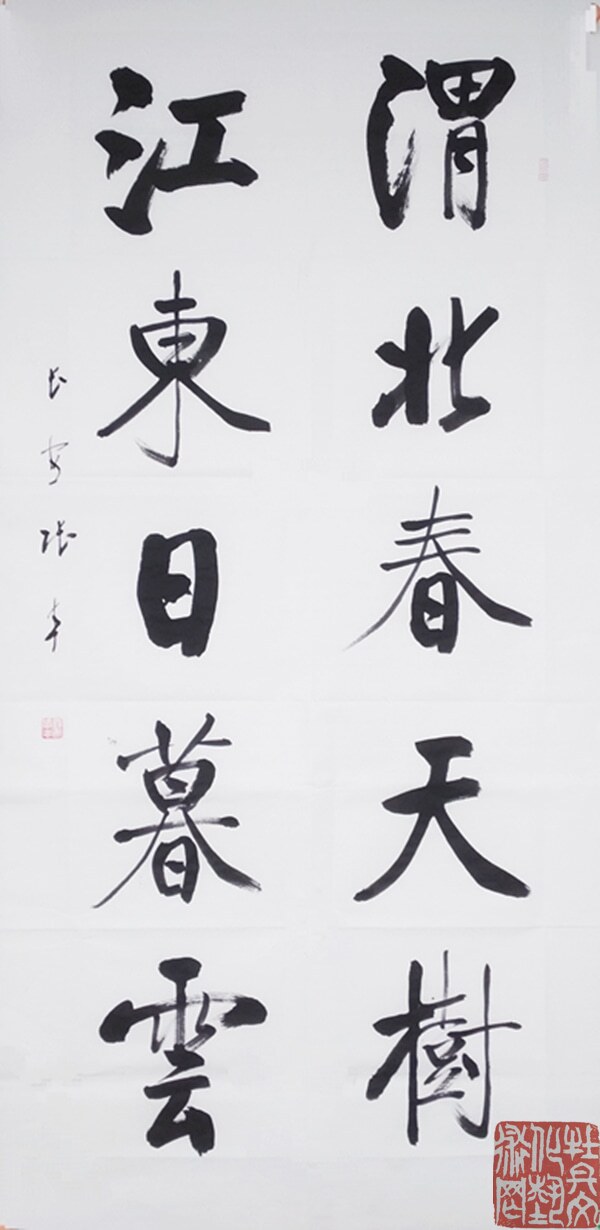 渭北春天樹
江東日暮雲
長安張本